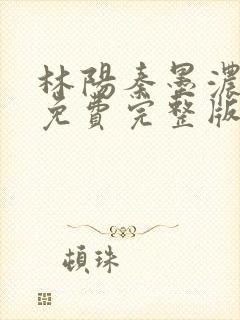 林陽秦墨濃
免費完整版
頓珠